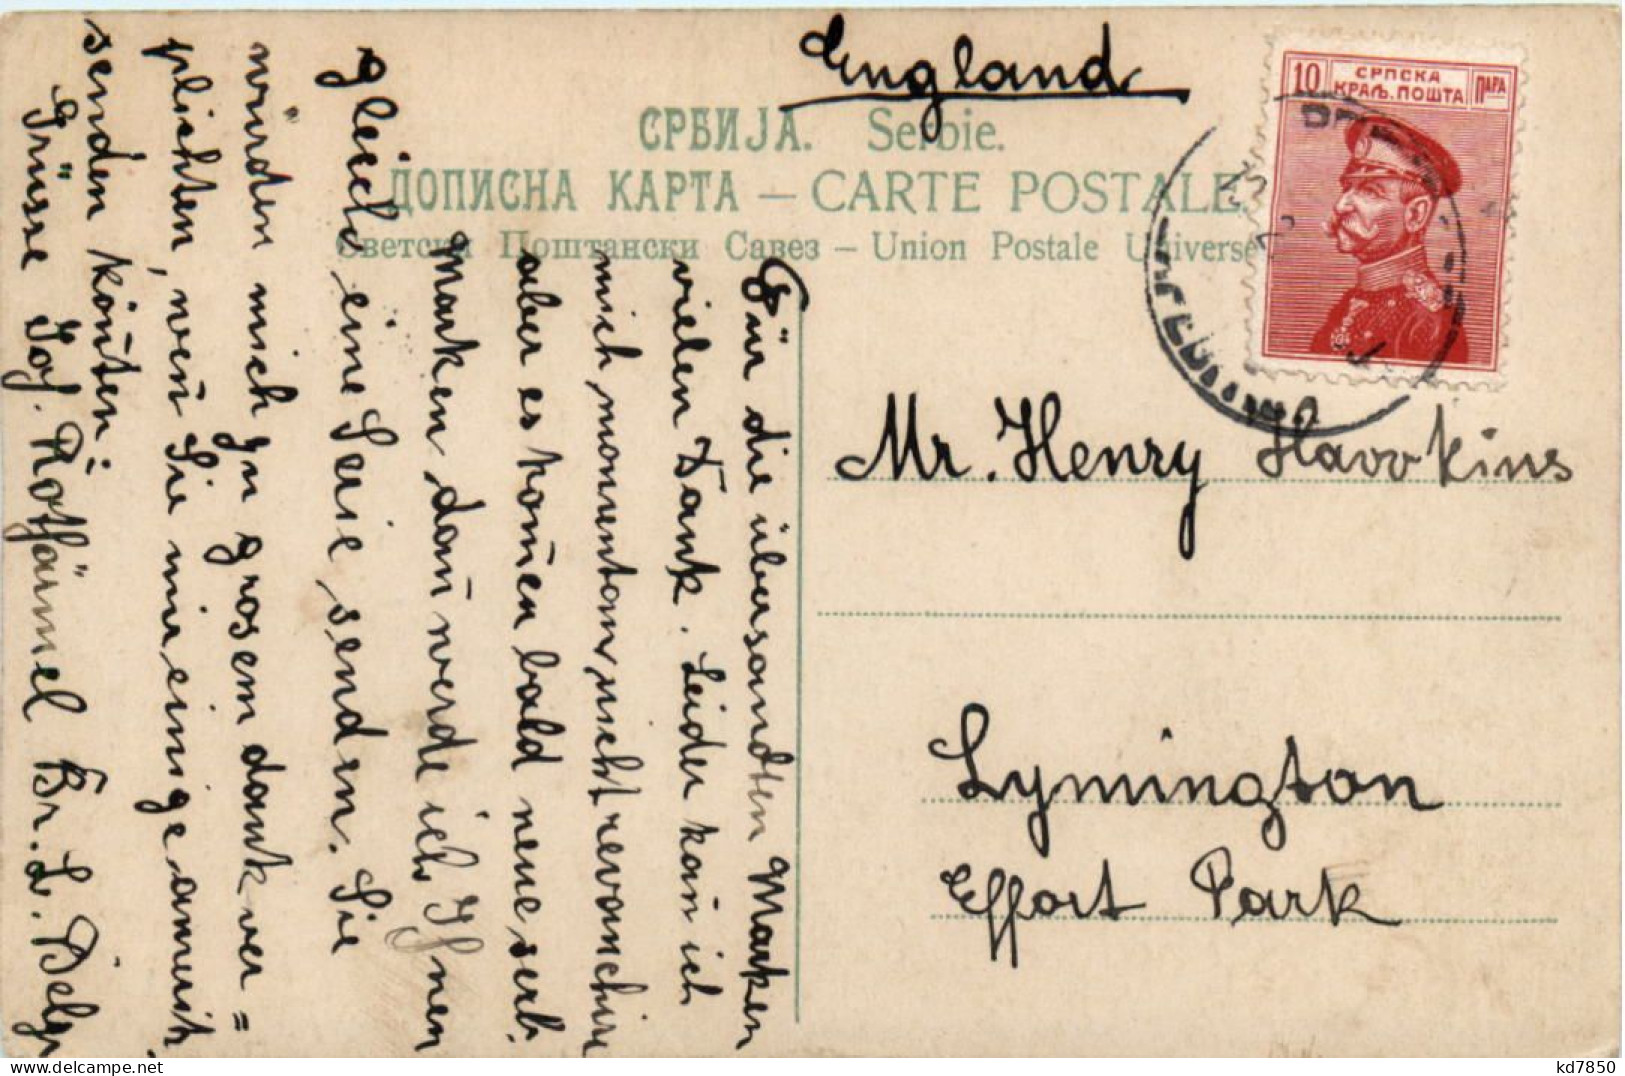 England
10 СРПСКА ПАРА
КРАЉ. ПОШТА
СРБИЈА. Serbie.
ДОПИСНА КАРТА — CARTE POSTALE
Светски Поштански Савез — Union Postale Universelle
Mr. Henry Hawkins
Lymington
Efford Park
Für die übersandten Marken
vielen Dank. Leider kan̄ ich
mich momentan nicht revanchiren
aber es kom̄en bald neue serb.
Marken, dan̄ werde ich Ihnen
gleich eine Serie senden. Sie
würden mich zu grosem dank ver=
plichten, wen̄ Sie mir einige
senden kön̄ten.
Grüsse Jos. Rothäimel Br. L.
kd7850